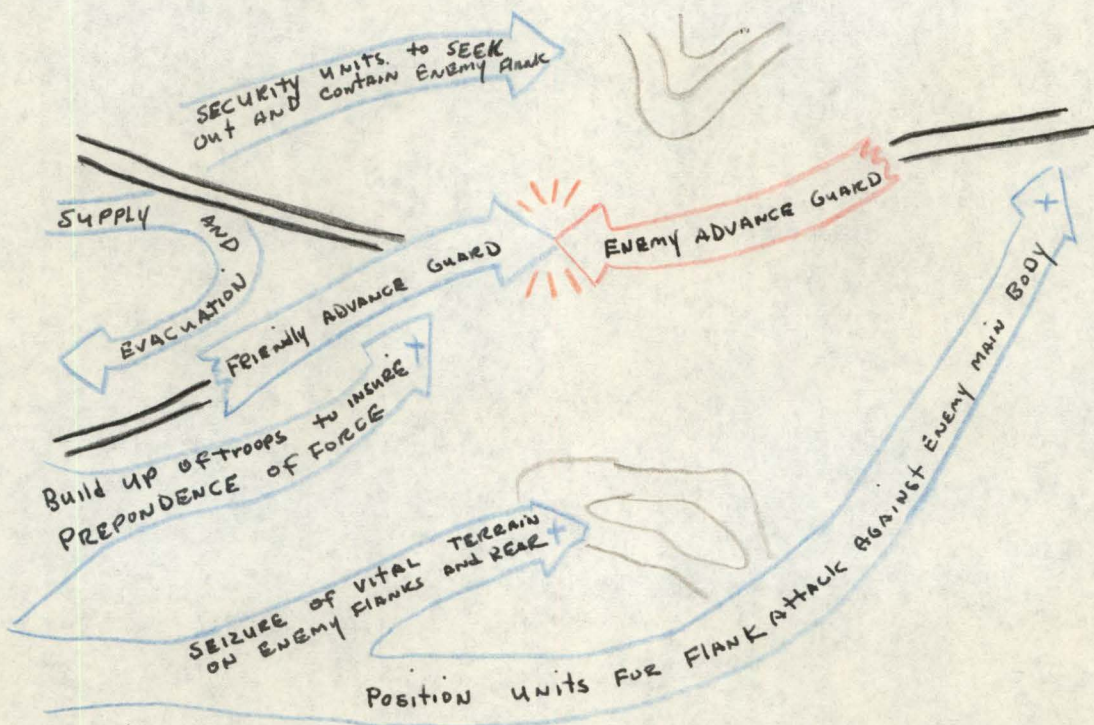 SECURITY UNITS to SEEK
OUt AND CONTAIN ENEMY FlANK
SUPPLY AND EVACUATION
FRIENdly ADVANCE GUARD
ENEMY ADVANCE GUARD
Build UP OF tROOPS to INSURE
PREPONDENCE OF FORCE
SEIZURE OF VITAL TERRAIN
ON ENEMY FlANKS AND REAR
POSITION UNITS FOR FlANK ATTACK AGAINSt ENEMY MAIN BODY